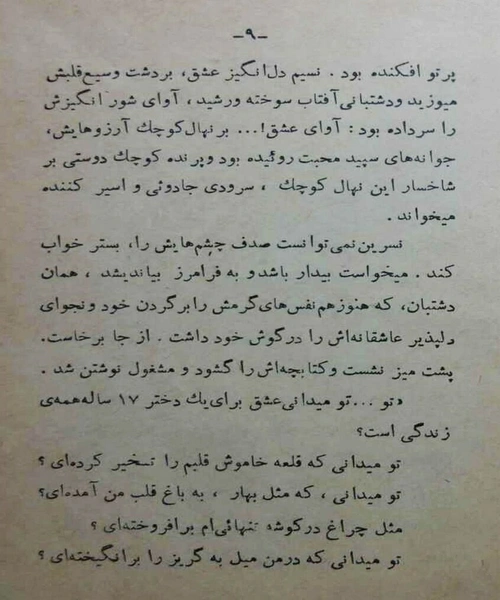 -۹-
پرتو افکنده بود . نسیم دل‌انگیز عشق، بردشت وسیع قلبش
میوزید ودشتبانی آفتاب سوخته ورشید، آوای شور انگیزش
را سرداده بود : آوای عشق!... بر نهال کوچك آرزوهایش،
جوانه‌های سپید محبت روئیده بود وپرنده کوچك دوستی بر
شاخسار این نهال کوچك ، سرودی جادوئی و اسیر کننده
میخواند .
نسرین نمی‌توانست صدف چشم‌هایش را، بستر خواب
کند . میخواست بیدار باشد و به فرامرز بیاندیشد ، همان
دشتبان، که هنوز هم نفس‌های گرمش را بر گردن خود و نجوای
دلپذیر عاشقانه‌اش را در گوش خود داشت . از جا برخاست.
پشت میز نشست و کتابچه‌اش را گشود و مشغول نوشتن شد .
«تو ... تو میدانی عشق برای یك دختر ۱۷ ساله همه‌ی
زندگی است؟
تو میدانی که قلعه خاموش قلبم را تسخیر کرده‌ای ؟
تو میدانی ، که مثل بهار ، به باغ قلب من آمده‌ای؟
مثل چراغ در گوشه تنهائی‌ام برافروخته‌ای ؟
تو میدانی که درمن میل به گریز را برانگیخته‌ای ؟